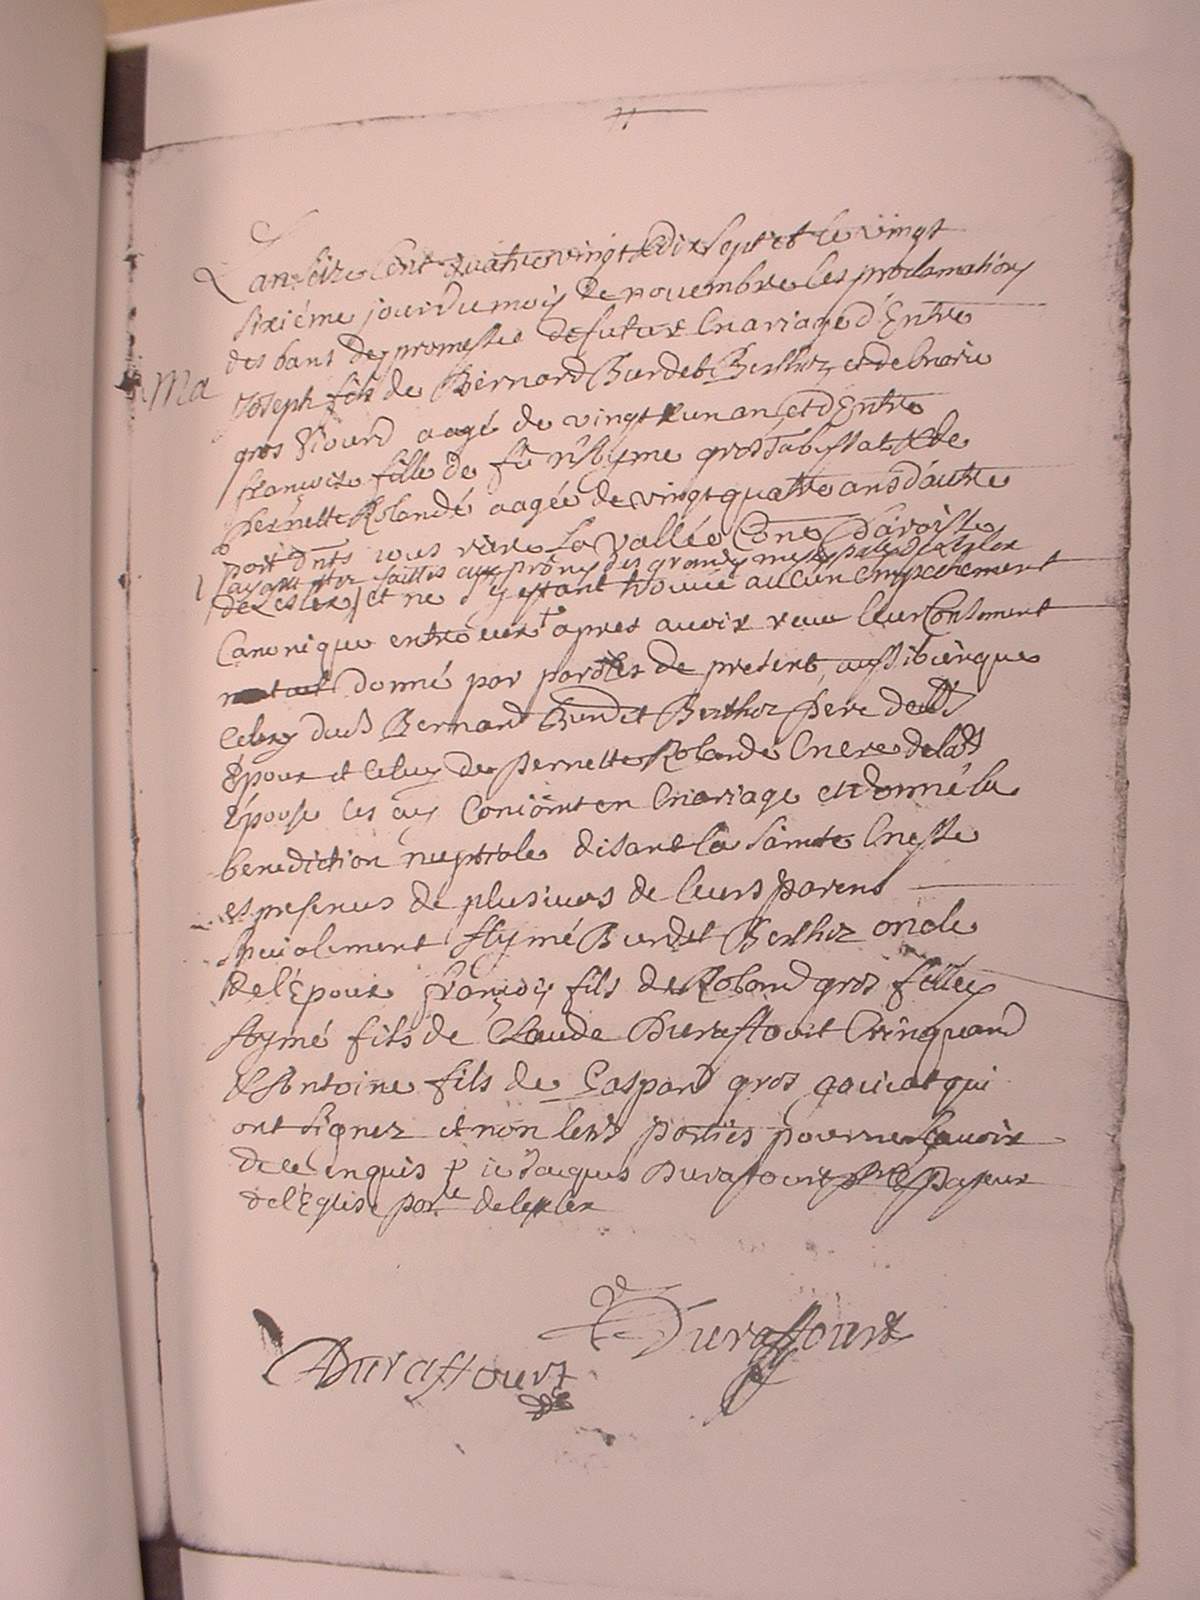 L'an seize Cent quatrevingt & dix sept et le vingt
sixiéme jour du mois de novembre les proclamations
des bans des promesses de futur mariage d'Entre
Ma
Joseph fils de Bernard Burdet Berthoz et de marie
gros Piourd aagé de vingt & un an, et d'Entre
françoise fille de fû gros &de
Pernette Rolande aagée de vingt quatre ans d'autre
part dnts tous rière La vallée
ayant estez faittes aux prônes des grandes messes
de Leslex, et ne s'y estant trouvé aucun empechement
Canonique entre eux apres avoir reçu leur Consement
mutuel donné par parolles de present, aussi bien que
Celuy dud Bernard Burdet Berthoz Pere dudt
Époux et Celuy de Pernette Rolande mere de ladt
Épouse les ay Conioint en mariage et donné la
benediction nuptiale disant la Sainte messe
et presences de plusieurs de leurs Parens
spécialement Aymé Burdet Berthoz oncle
de l'Époux françois fils de Roland gros filley
Aymé fils de Claude Duraffourt
& Antoine fils de Gaspard gros qui
ont Signez et non lesd parties pour ne sçavoir
de ce enquis p ie Jacques Duraffourt pbre & Pasteur
de l'Eglise parle de lellex
Duraffourt
Duraffourt